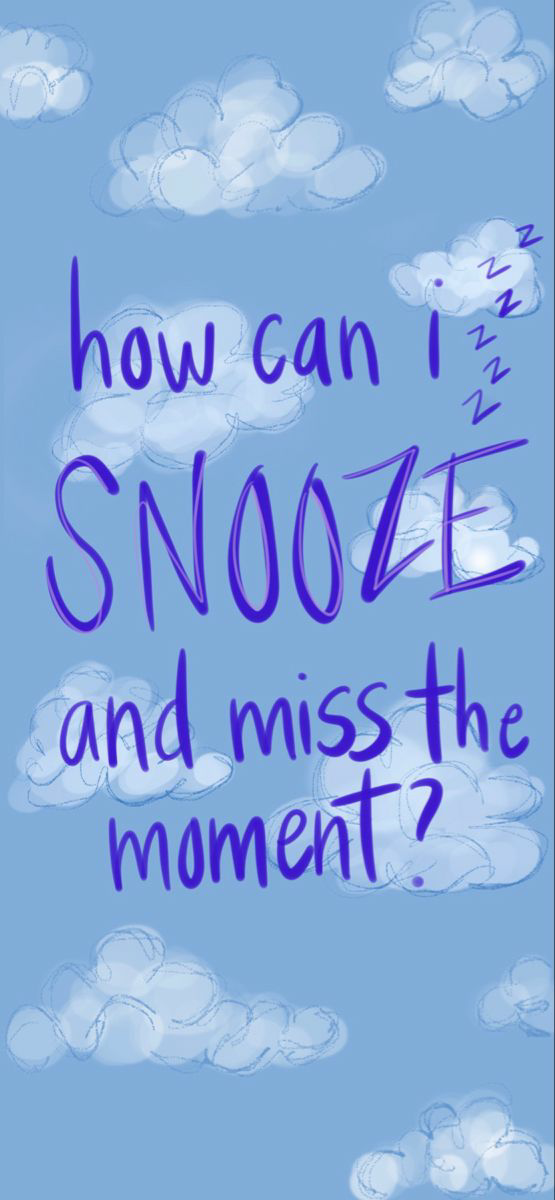 how can i
z z z z z z
SNOOZE
and miss the
moment?